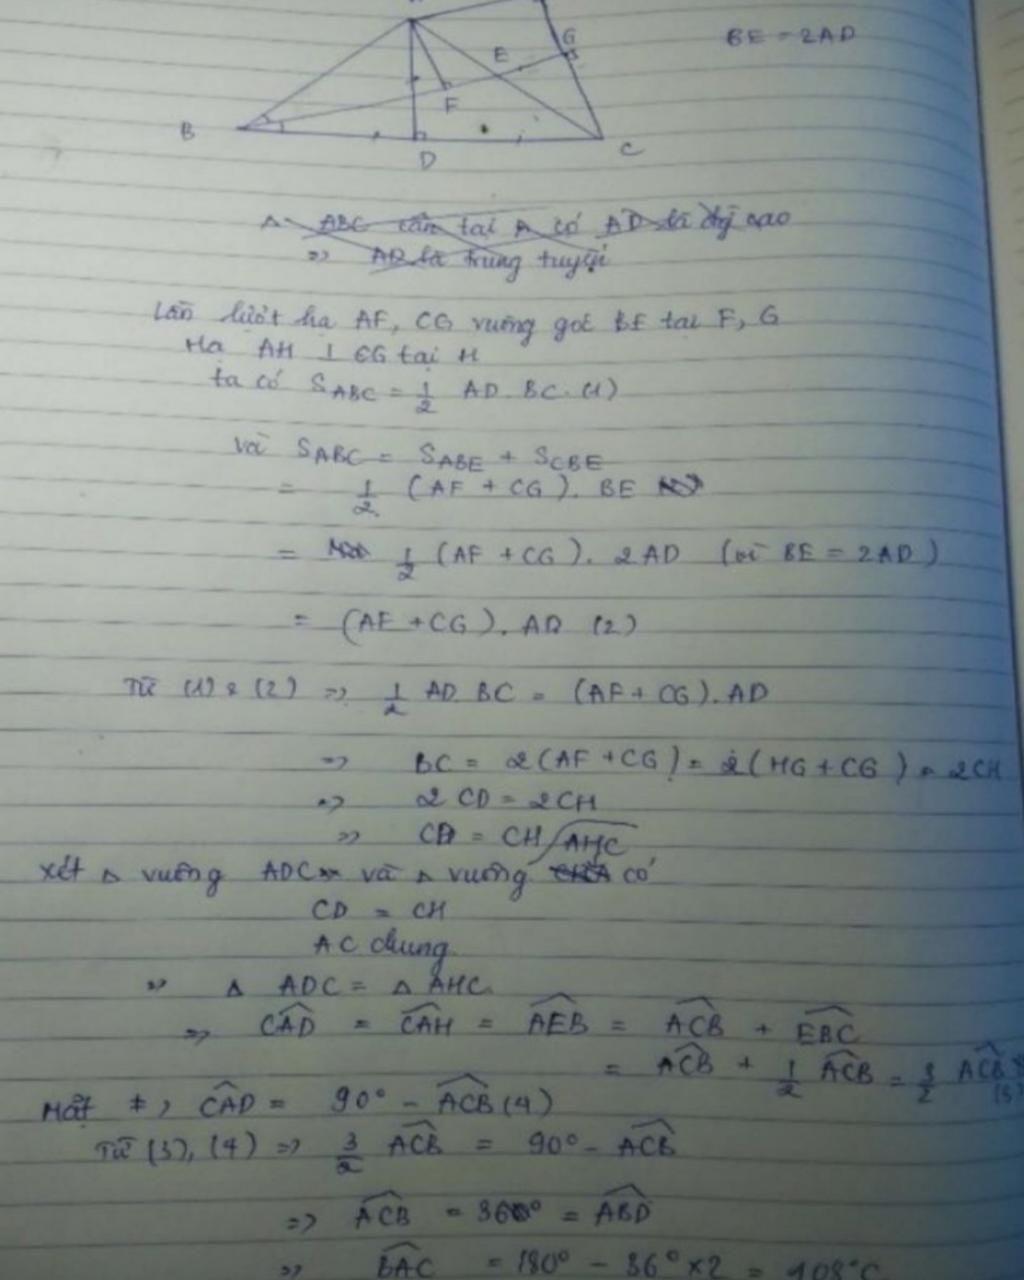 BE = 2AD
G
E
F
B
D
C
Δ ABC cân tại A có AD là đg cao
=> AD là trung tuyến
Lần lượt hạ AF, CG vuông góc BE tại F, G
Hạ AH ⊥ CG tại H
ta có S_ABC = 1/2 AD. BC. (1)
và S_ABC = S_ABE + S_CBE
= 1/2 (AF + CG). BE
= 1/2 (AF + CG). 2AD (vì BE = 2AD)
= (AF + CG). AD (2)
Từ (1) & (2) => 1/2 AD. BC = (AF + CG). AD
=> BC = 2(AF + CG) = 2(HG + CG) = 2CH
=> 2 CD = 2CH
=> CD = CH
xét Δ vuông ADC và Δ vuông AHC có
CD = CH
AC chung
=> Δ ADC = Δ AHC
=> CAD^ = CAH^ = AEB^ = ACB^ + EBC^
= ACB^ + 1/2 ACB^ = 3/2 ACB^ (3)
Mặt ≠, CAD^ = 90° - ACB^ (4)
Từ (3), (4) => 3/2 ACB^ = 90° - ACB^
=> ACB^ = 36° = ABD^
=> BAC^ = 180° - 36° × 2 = 108°